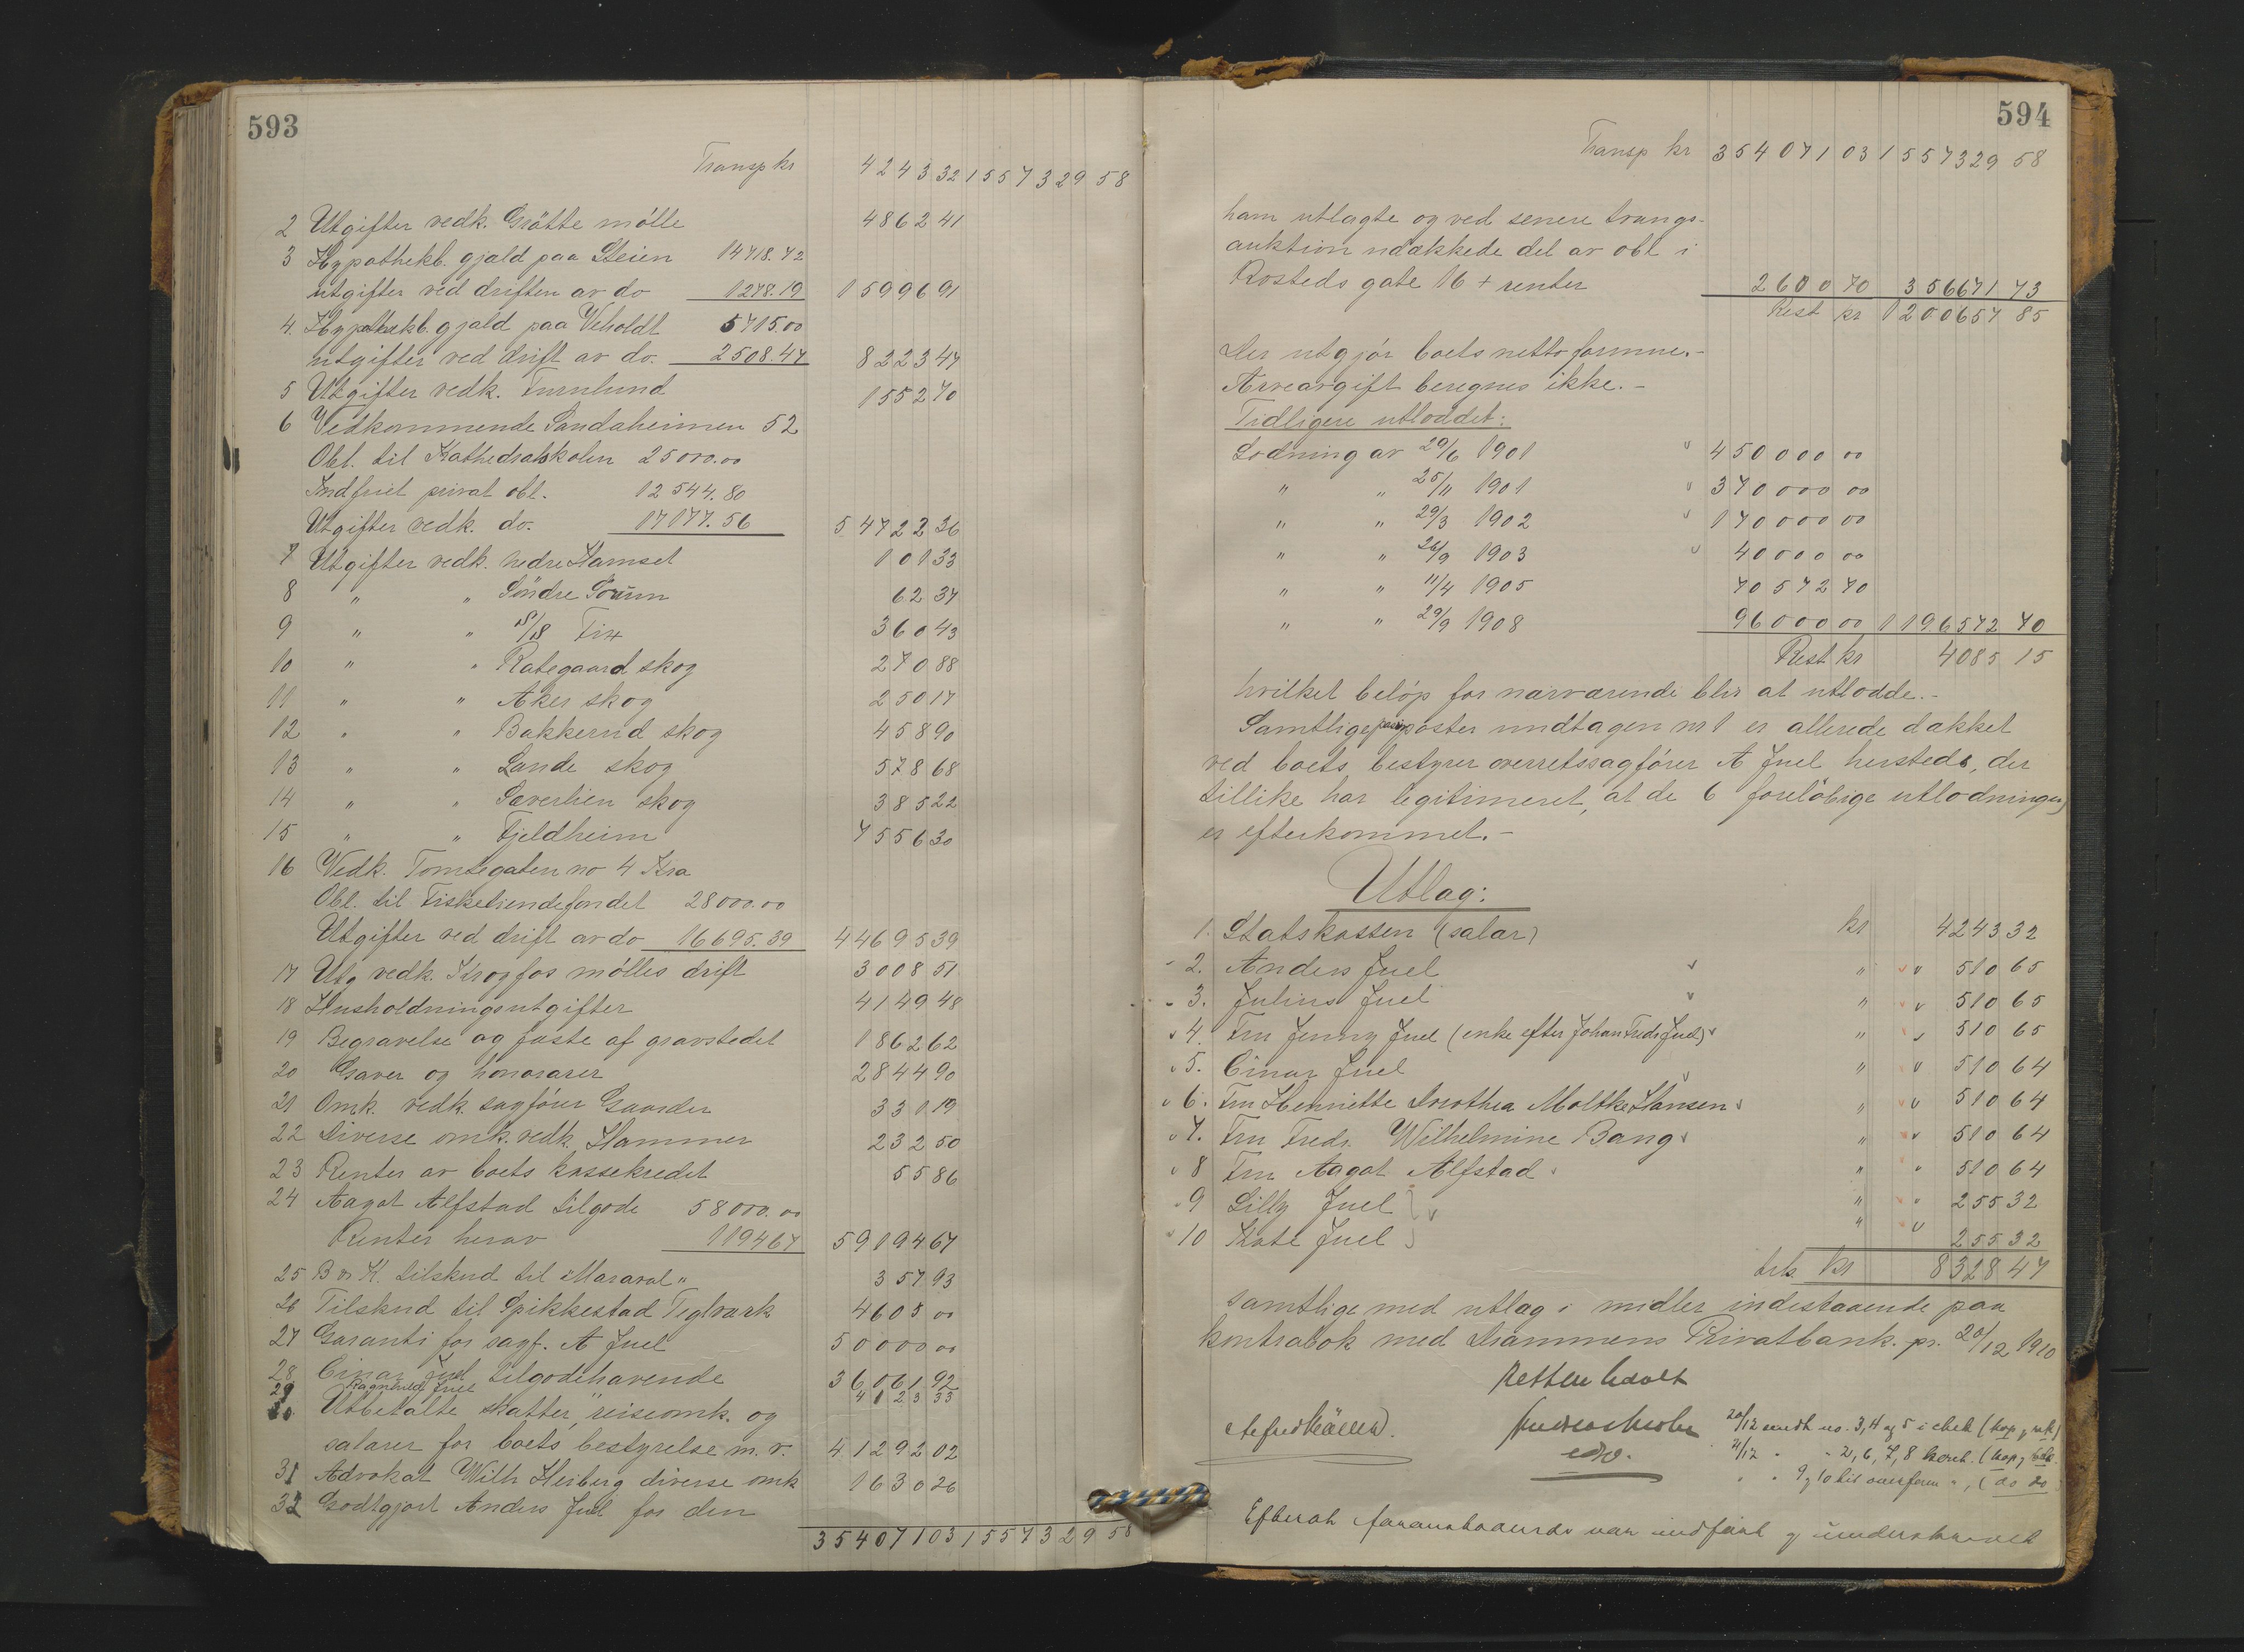 593
Transp kr 4243 32 1557329 58
2 Utgifter vedk. Grötte mölle 4862 41
3 Hypothekb. gjæld paa Steien 14718.72
utgifter ved driften av do 1278.19 15996 91
4. Hypothekb. gjæld paa Veholdt 5715.00
utgifter ved drift av do. 2508.47 8223 47
5 Utgifter vedk. Furulund 1552 70
6 Vedkommende Sandaheimen 52
Obl. til Kathedralskolen 25000.00
Indfriet privat obl. 12544.80
Utgifter vedk. do. 17177.56 54722 36
7 Utgifter vedk. nedre Hamset 101 33
8 " " Söndre Sörum 62 37
9 " " S/S Fix 360 43
10 " " Rategaard skog 270 88
11 " " Aker skog 250 17
12 " " Bakkerud skog 458 90
13 " " Lande skog 578 68
14 " " Sæverlien skog 385 22
15 " " Fjeldheim 7556 30
16 Vedk. Tomtegaten no 4 Kra
Obl. til Fisketiendefondet 28000.00
Utgifter ved drift av do 16695.39 44695 39
17 Utg vedk. Krogfos mölles drift 3008 51
18 Husholdningsutgifter 4149 48
19 Begravelse og fæste af gravstedet 1862 62
20 Gaver og honorarer 2844 90
21 Omk. vedk. sagförer Gaarder 330 19
22 Diverse omk. vedk. Hammer 232 50
23 Renter av boets kassekredit 55 86
24 Aagot Alfstad tilgode 58000.00
Renter herav 1194 67 59194 67
25 B og K. tilskud til "Maraval" 357 93
26 Tilskud til Spikkestad Teglværk 4608 00
27 Garanti for sagf. A Juel 50000 00
28 Einar Juel tilgodehavende 36061 92
29 Ragnhild Juel " 4123 33
30 Utbetalte skatter, reiseomk. og
salærer for boets bestyrelse m. v. 41292 02
31 Advokat Wilh Heiberg diverse omk 1630 26
32 Godtgjort Anders Juel for den
354071 03 1557329 58
594
Transp kr 354071 03 1557329 58
ham utlagte og ved senere tvangs-
auktion udækkede del av obl i
Rosteds gate 16 + renter 2600 70 356671 73
Rest kr 1200657 85
Der utgjör boets netto formue.-
Arveavgift beregnes ikke.-
Tidligere utloddet:
Lodning av 29/6 1901 450000 00
" " 25/11 1901 370000 00
" " 29/3 1902 170000 00
" " 26/9 1903 40000 00
" " 11/4 1905 70572 70
" " 29/9 1908 96000 00 1196572 70
Rest kr 4085 15
hvilket belöp for nærværende blir at utlodde.-
Samtlige passivposter undtagen nr 1 er allerede dækket
ved boets bestyrer overretssagförer A Juel hersteds, der
tillike har legitimeret, at de 6 forelöbige utlodninger
er efterkommet.-
Utlæg:
1. Statskassen (salær) kr 4243 32
2. Anders Juel " 510 65
3. Julius Juel " 510 65
4. Fru Jenny Juel (enke efter Johan Fredr Juel) " 510 65
5. Einar Juel " 510 64
6. Fru Henriette Dorothea Moltke Hansen " 510 64
7. Fru Fredr. Wilhelmine Bang " 510 64
8 Fru Aagot Alfstad " 510 64
9 Lilly Juel " 255 32
10 Kate Juel " 255 32
tils kr 8328 47
samtlige med utlæg i midler indestaaende paa
kontrabok med Drammens Privatbank. pr. 20/12 1910
Retten hævet
20/12 sendt no. 3, 4 og 5 i chek
21/12 " " 2, 6, 7, 8
" " 9 og 10 til overform " , (do do
Efterat foranstaaende var indfört og underskrevet